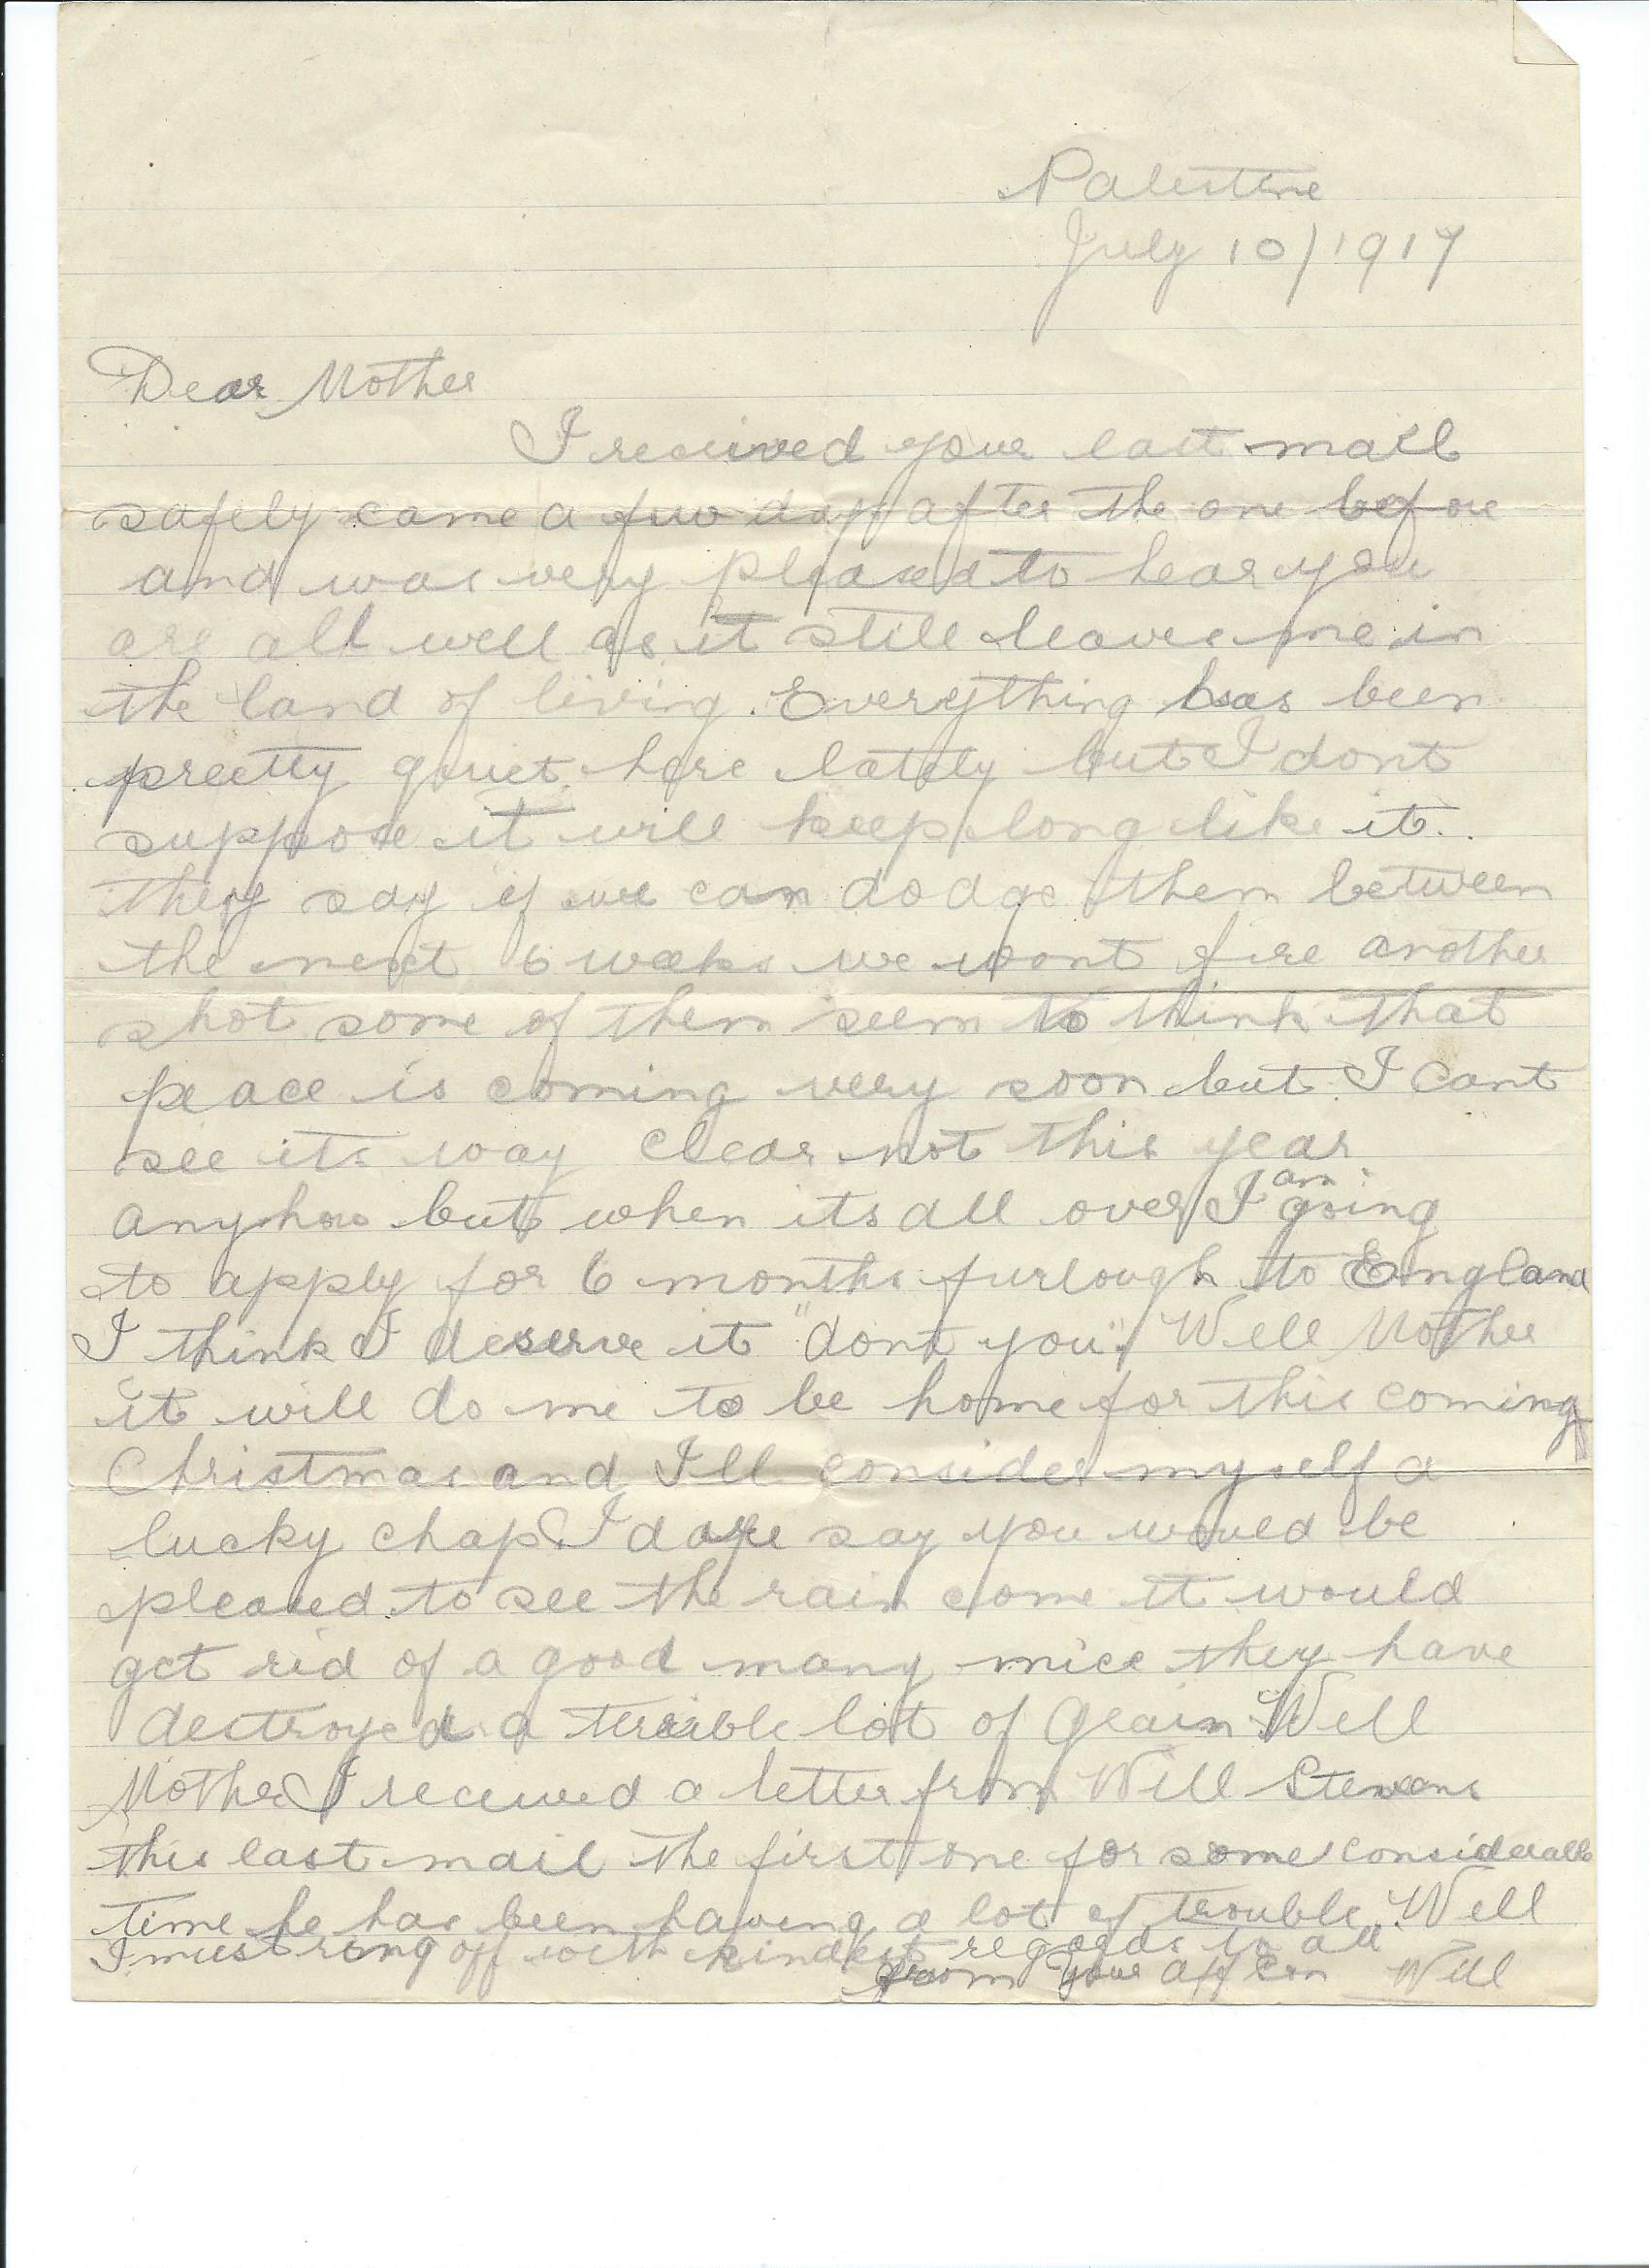 Palestine
July 10/1917
Dear Mother
I received your last mail
safely came a few days after the one before
and was very pleased to hear you
are all well as it still leaves me in
the land of living. Everything has been
preetty quiet here lately but I dont
suppose it will keep long like it.
they say if we can dodge them between
the next 6 weeks we wont fire another
shot some of them seem to think that
peace is coming very soon but I cant
see its way clear not this year
anyhow but when its all over I am going
to apply for 6 months furlough to England
I think I deserve it "dont you". Well Mother
it will do me to be home for this coming
Christmas and I'll consider myself a
lucky chap. I dare say you would be
pleased to see the rain come it would
get rid of a good many mice they have
destroyed a terrible lot of Grain Well
Mother I received a letter from Will Stevens
this last mail the first one for some considerable
time he has been having a lot of trouble. Well
I must ring off with kindest regards to all
from your aff son Will